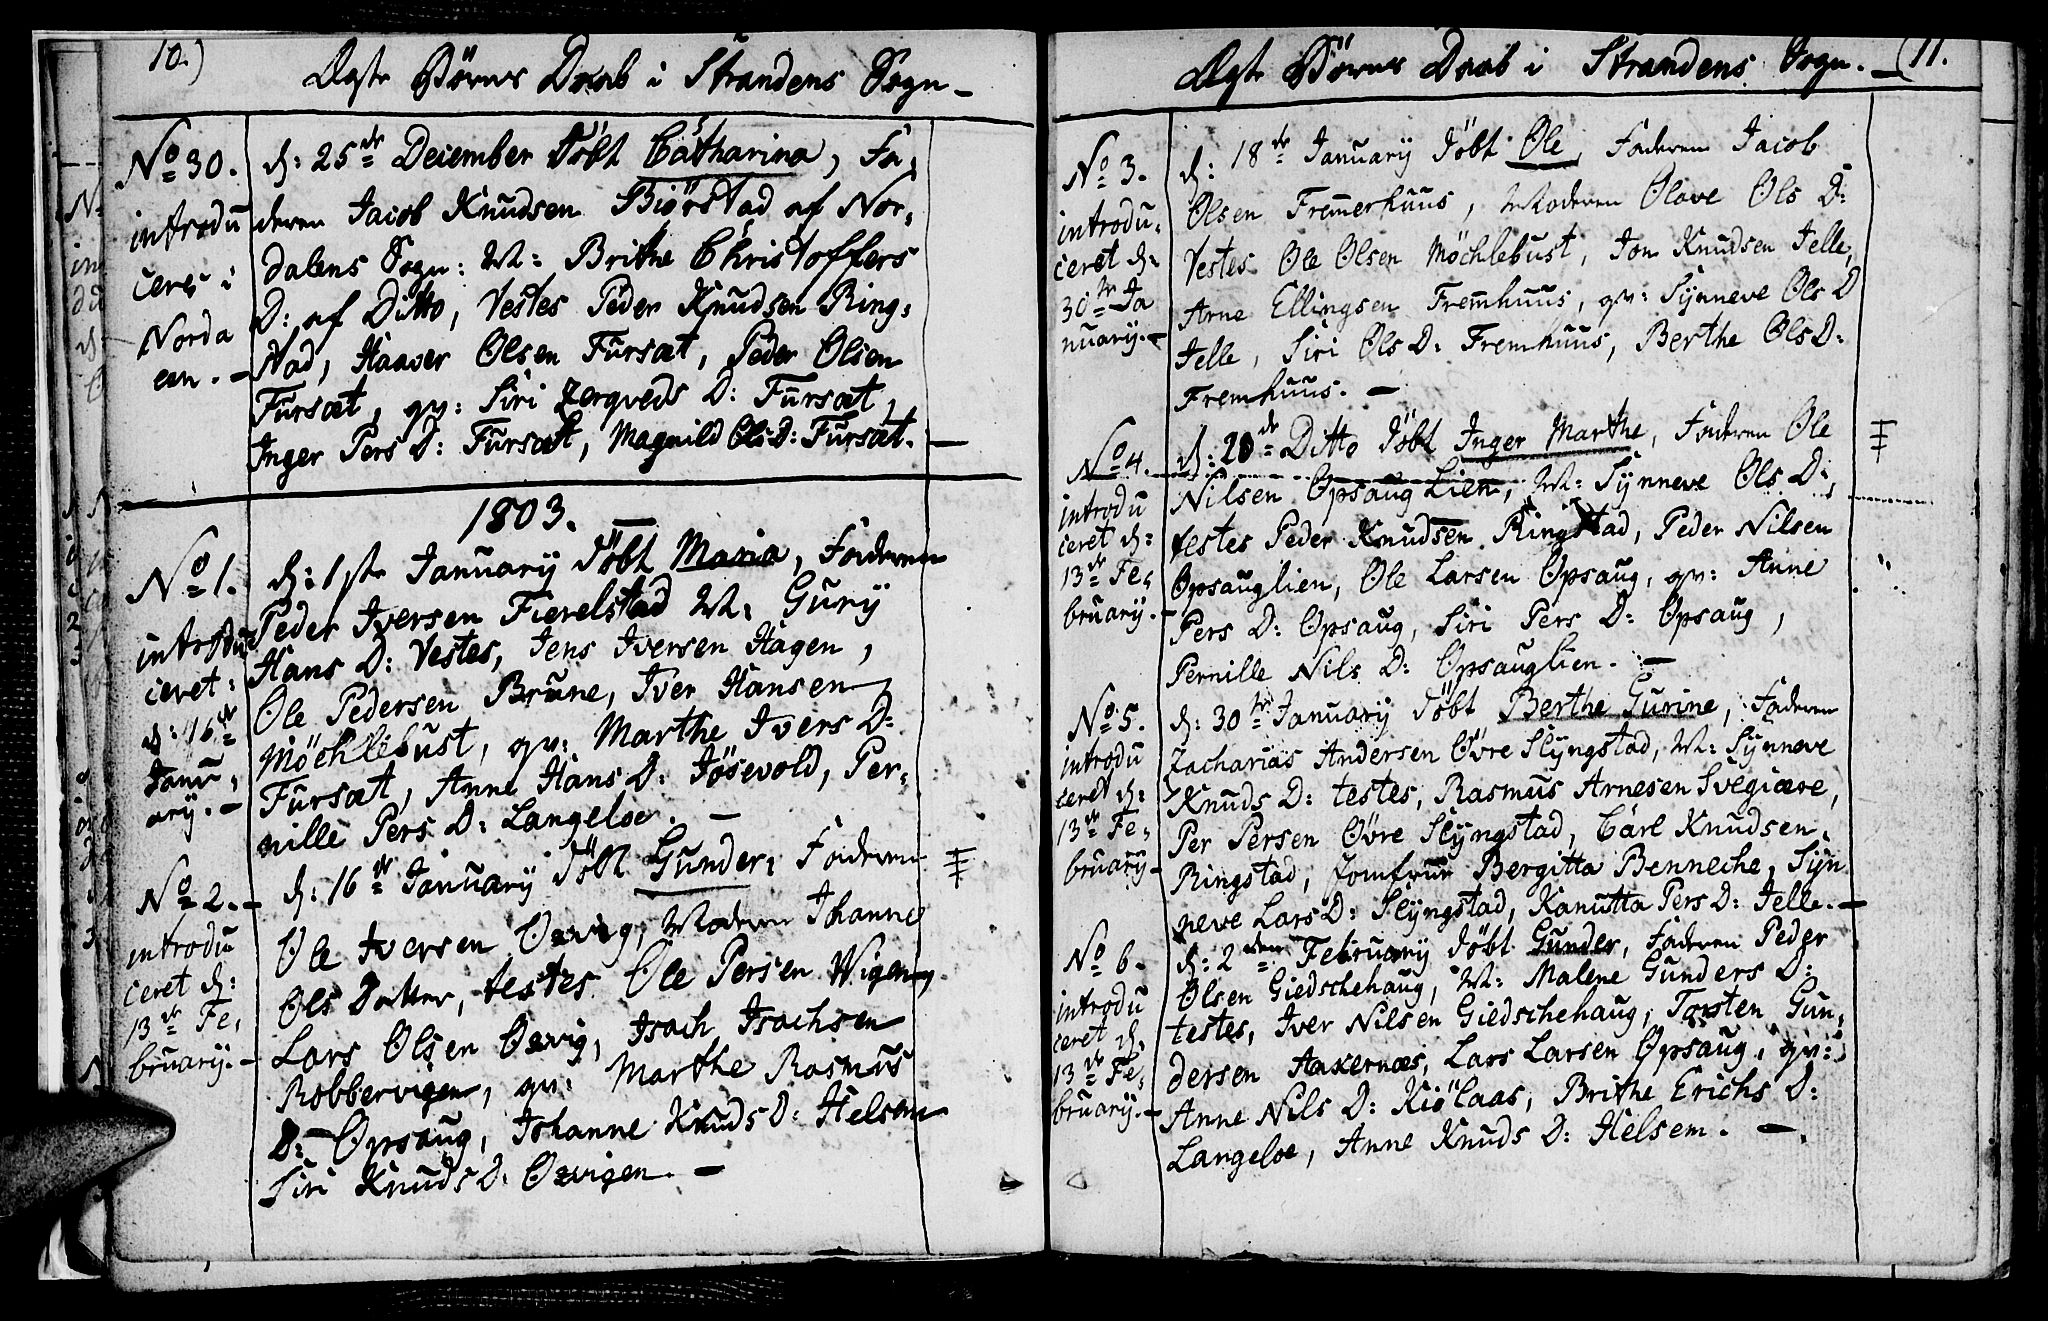 10.)
Ægte Börns Daab i Strandens Sogn –
No 30.
introdu
ceres i
Norda
een. –
d: 25de December döbt Catharina, Fa,
deren Jacob Knudsen Biörstad af Nor,
dalens Sogn: M: Brithe Christoffers
D: af Ditto, Testes Peder Knudsen Ring,
stad, Haaver Olsen Fursæt, Peder Olsen
Fursæt, qv: Siri Zergveds D: Fursæt,
Inger Pers D: Fursæt, Magnild Ols D: Fursæt. –
1803.
No 1.
introdu
ceret:
d: 16de
Janu,
ary. –
d: 1ste January döbt Maria, Faderen
Peder Iversen Fierelstad M: Gury
Hans D: Testes, Jens Iversen Hagen,
Ole Pedersen Brune, Iver Hansen
Möchlebust, qv: Marthe Ivers D:
Fursæt, Anne Hans D: Jösevold, Per,
nille Pers D: Langeloe. –
No 2. –
introdu
ceret d:
13de Fe,
bruary. –
d: 16de January döbt Gunder, Faderen
Ole Iversen Ozvig, Moderen Johanne
Ols Datter, testes Ole Persen Wigen,
Lars Olsen Ozvig, Isach Isachsen
Robbervigen, qv: Marthe Rasmus
D: Opsaug, Johanne Knuds D: Helsem
Siri Knuds D: Ozvigen. –
Ægte Börns Daab i Strandens Sogn. – (11.
No 3.
introdu,
ceret d:
30te Ja
nuary. –
d: 18de January döbt Ole, Faderen Jacob
Olsen Fremerhuus, Moderen Olave Ols D:
Testes Ole Olsen Möchlebust, Jon Knudsen Jelle,
Arne Ellingsen Fremhuus, qv: Synneve Ols D
Jelle, Siri Ols D: Fremhuus, Berthe Ols D:
Fremhuus. –
No 4.
introdu
ceret d:
13de Fe,
bruary. –
d: 20de Ditto döbt Inger Marthe, Faderen Ole
Nilsen Opsaug Lien, M: Synneve Ols D:
testes Peder Knudsen Ringstad, Peder Nilsen
Opsauglien, Ole Larsen Opsaug, qv: Anne
Pers D: Opsaug, Siri Pers D: Opsaug,
Pernille Nils D: Opsauglien. –
No 5.
introdu
ceret d:
13de Fe,
bruary –
d: 30te January döbt Berthe Gurine, Faderen
Zacharias Andersen Övre Slyngstad, M: Synneve
Knuds D: testes, Rasmus Arnesen Svegiære,
Per Persen Övre Slyngstad, Carl Knudsen
Ringstad, Jomfrue Bergitta Benneche, Syn
neve Lars D: Slyngstad, Kanutta Pers D: Jelle. –
No 6.
introdu
ceret d.
13de Fe,
bruary. –
d: 2den February döbt Gunder, Faderen Peder
Olsen Giedschehaug, M: Malene Gunders D:
testes, Iver Nilsen Giedschehaug, Torsten Gun,
dersen Aakernæs, Lars Larsen Opsaug, qv:
Anne Nils D: Kiölaas, Brithe Erichs D:
Langeloe, Anne Knuds D: Helsem. –